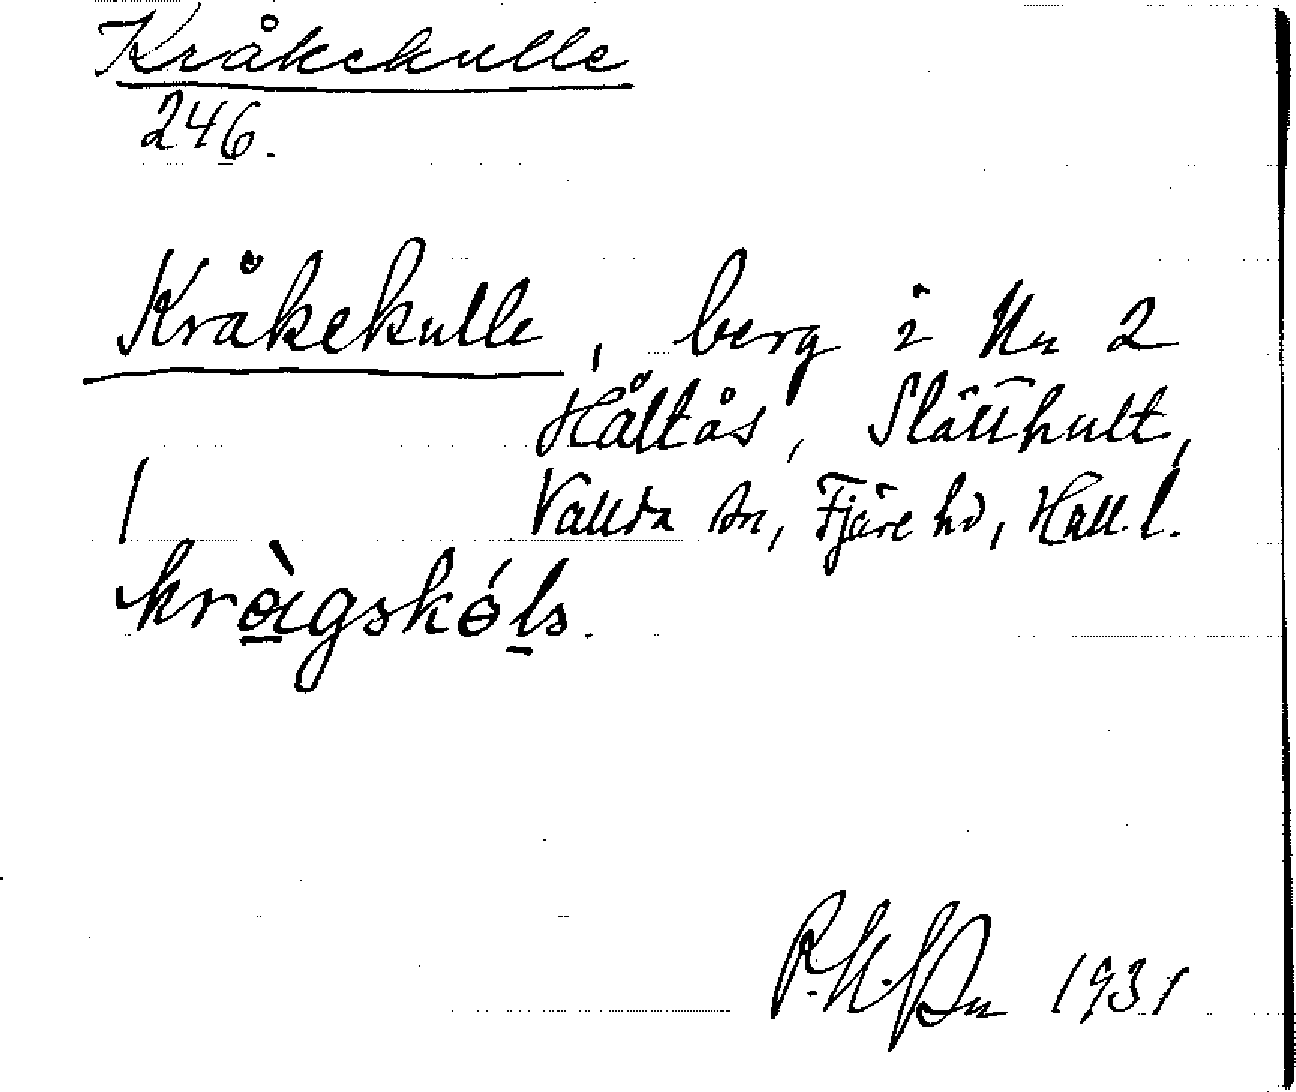 Kråkekulle
246.
Kråkekulle, berg i Nr 2
Håltås, Slätthult,
Vallda sn, Fjäre hd, Hall. l.
1931